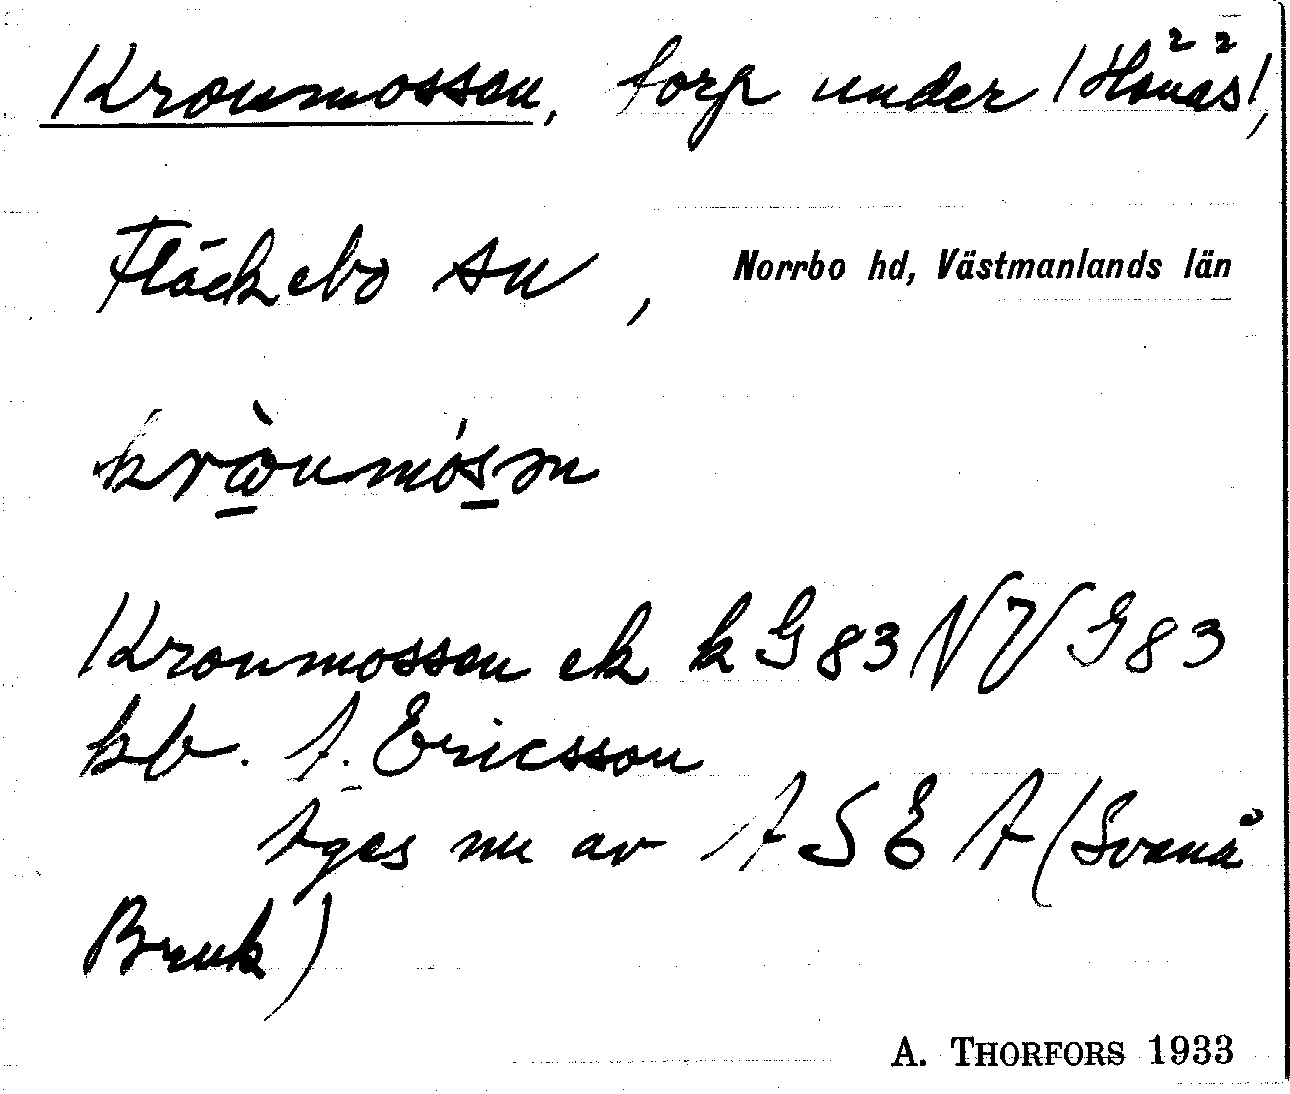 Kronmossen, torp under /Hönäs/,
Fläckebo sn, Norrbo hd, Västmanlands län
Kronmossen ek k G 83 NV G 83
hb. A. Ericsson
Äges nu av ASEA (Svanå
Bruk)
A. THORFORS 1933